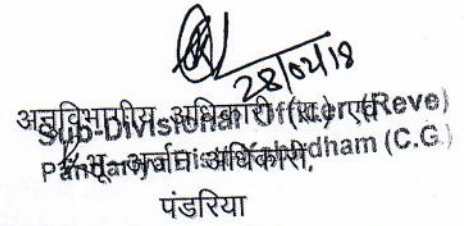 28/02/18
अनुविभागीय अधिकारी (रा.) एवं
Sub-Divisional Officer (Reve)
भू-अर्जन अधिकारी,
Pandariya Dist. dham (C.G.)
पंडरिया